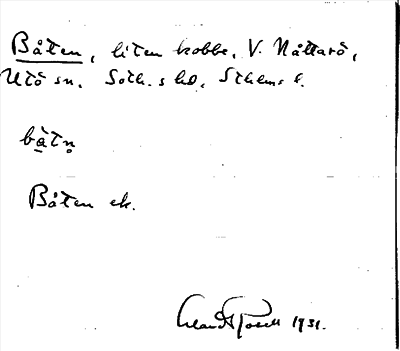 Båten, liten kobbe, V. Nåttarö,
Utö sn. Soth. s hd, Sthlms l.
båtn̥
Båten ek.
1931.